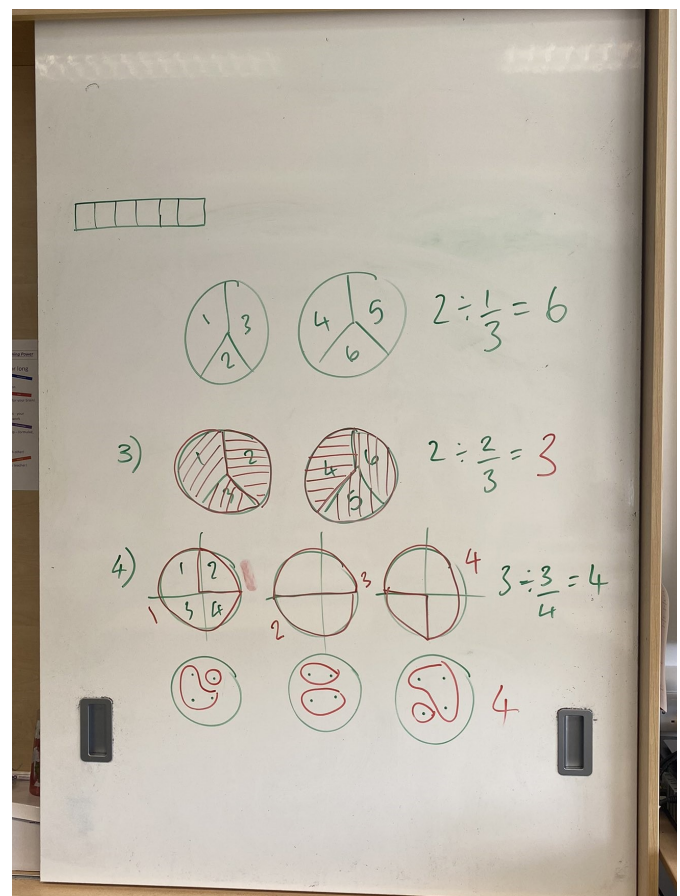 1 3 2 4 5 6 2 ÷ 1/3 = 6
3) 1 2 3 4 6 5 2 ÷ 2/3 = 3
4) 1 2 3 4 1 2 3 4 3 ÷ 3/4 = 4
4